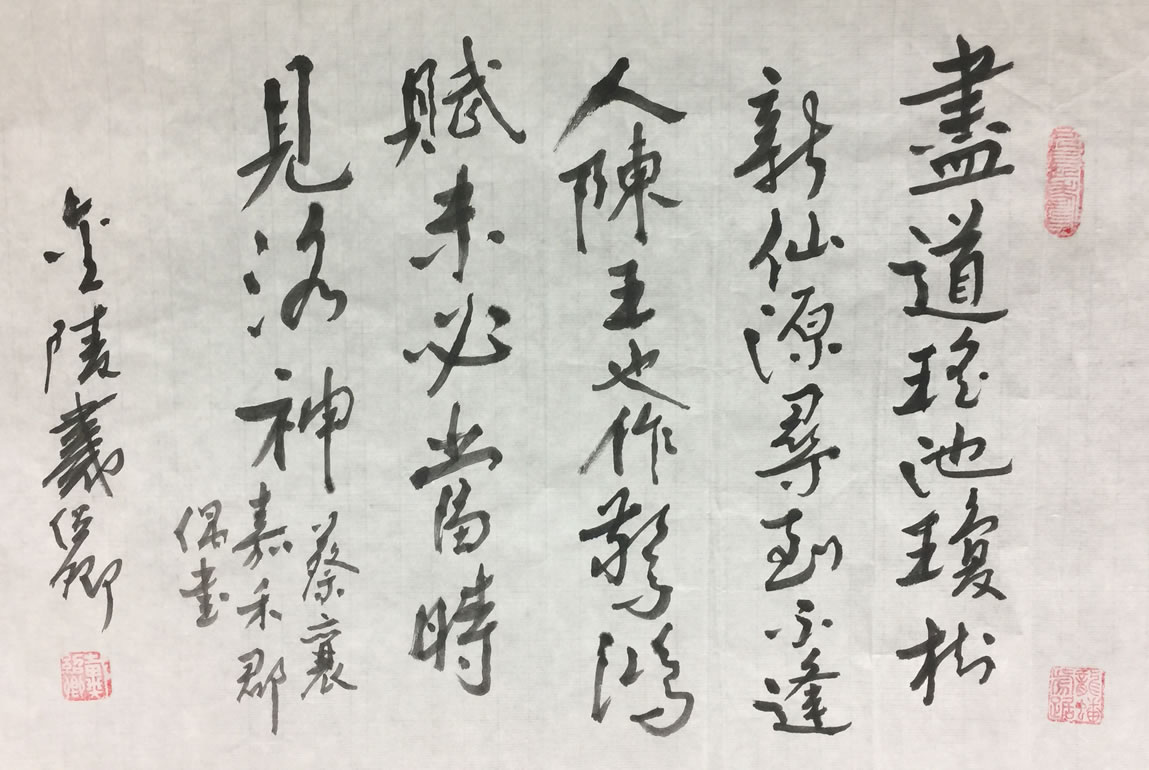 盡道瑤池瓊樹
新仙源尋到不逢
人陳王也作驚鴻
賦未必當時
見洛神
蔡襄
嘉禾郡
偶書
金陵
龍蟠
虎踞